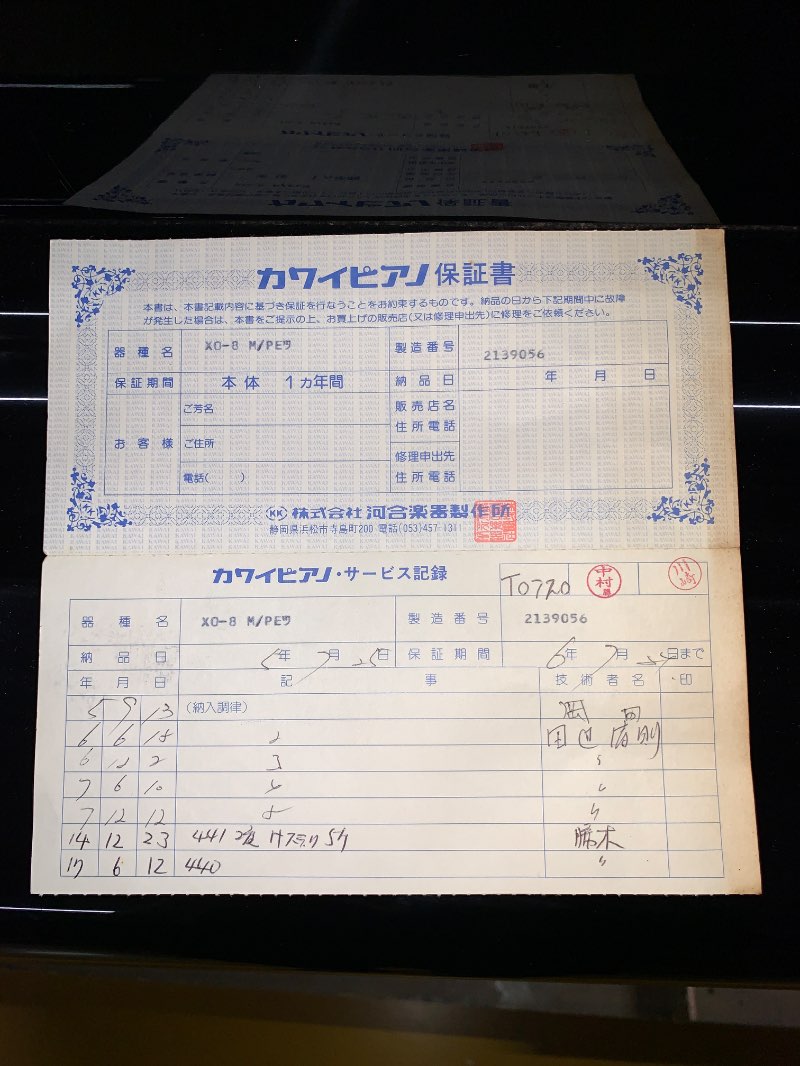 カワイピアノ 保証書
本書は、本書記載内容に基づき保証を行なうことをお約束するものです。納品の日から下記期間中に故障
が発生した場合は、本書をご提示の上、お買上げの販売店(又は修理申出先)に修理をご依頼ください。
器種名 XO-8 M/PEﾂ 製造番号 2139056
保証期間 本体 1ヵ年間 納品日 年 月 日
お客様 ご芳名 販売店名
住所電話
ご住所
修理申出先
電話( ) 住所電話
KK 株式会社 河合楽器製作所
静岡県浜松市寺島町200 電話(053)457-1311
カワイピアノ・サービス記録 T0720 中村 川崎
器種名 XO-8 M/PEﾂ 製造番号 2139056
納品日 5年 7月 25日 保証期間 6年 7月 日まで
年 月 日 記事 技術者名 印
5 9 13 (納入調律)
6 6 18 2
6 12 2 3 〃
7 6 10 4 〃
7 12 12 5 〃
14 12 23 441
17 6 12 440 〃